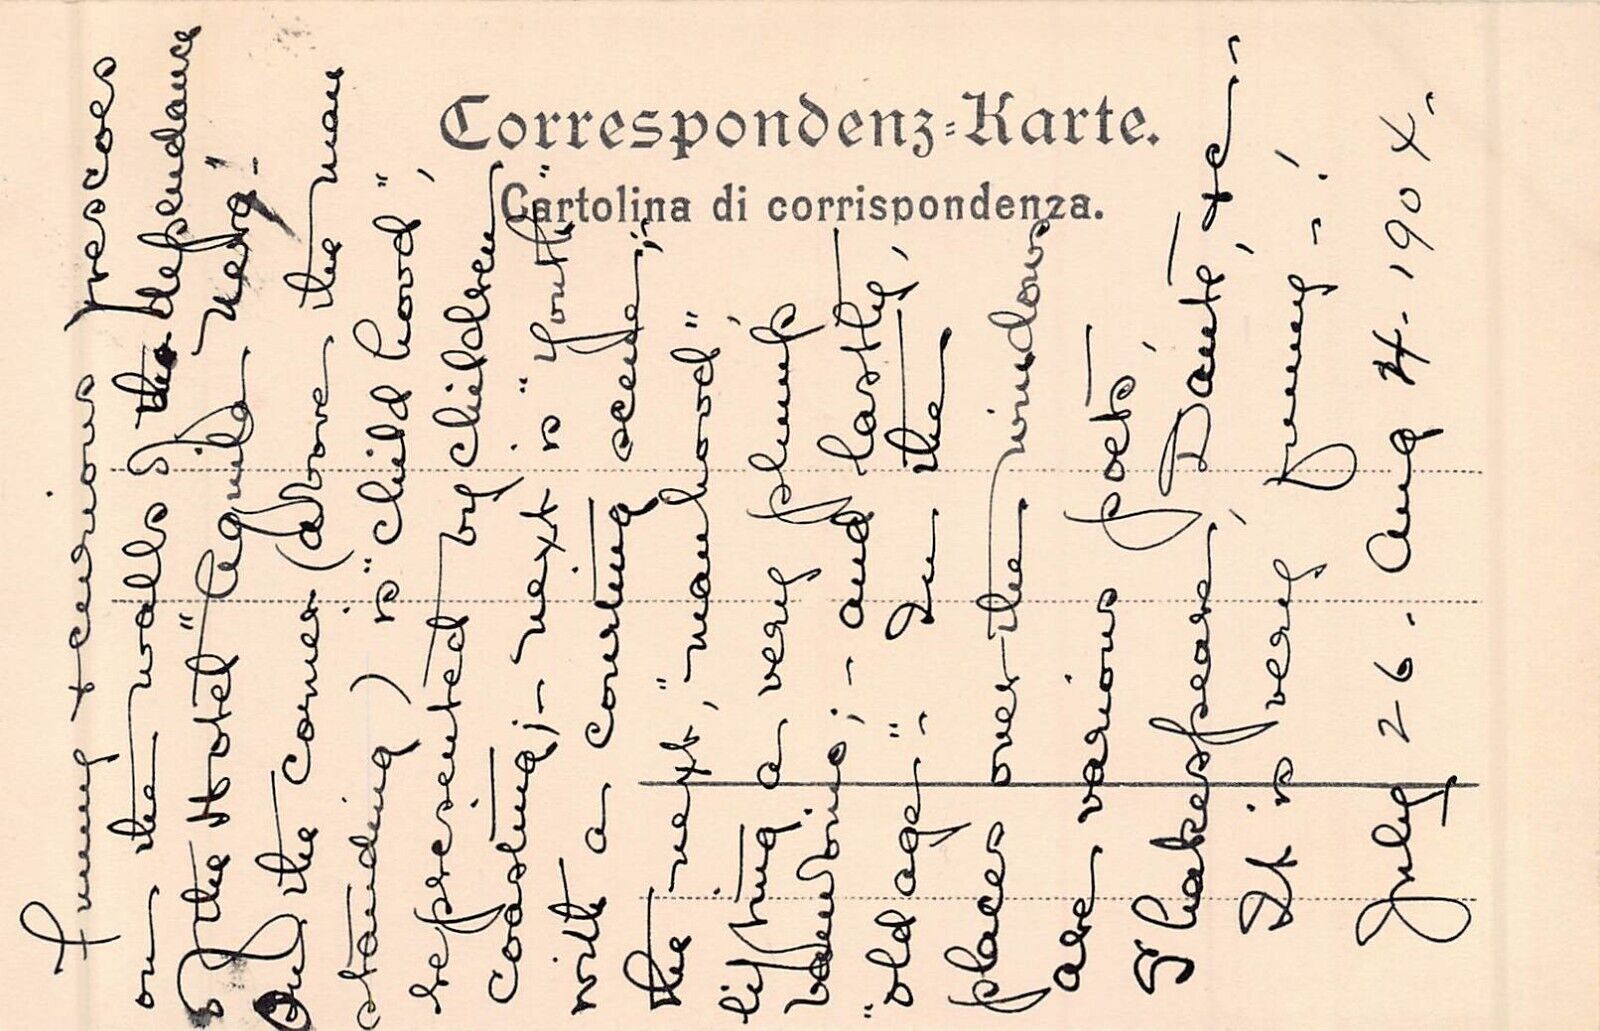 Correspondenz-Karte.
Cartolina di corrispondenza.
Funny & curious frescoes
on the walls of the dependance
of the Hotel "Aquila Nera"!
On the corner (above the man
standing) is "child hood",
represented by children
coasting;- next is "youth"
with a courting scene;
the next, "manhood",
lifting a very plump
; - and lastly,
"old age" - In the
places over the windows
are various poets,
Shakespeare, Dante, &c -
It is very funny - !
July 26 - Aug 4 - 1904 -